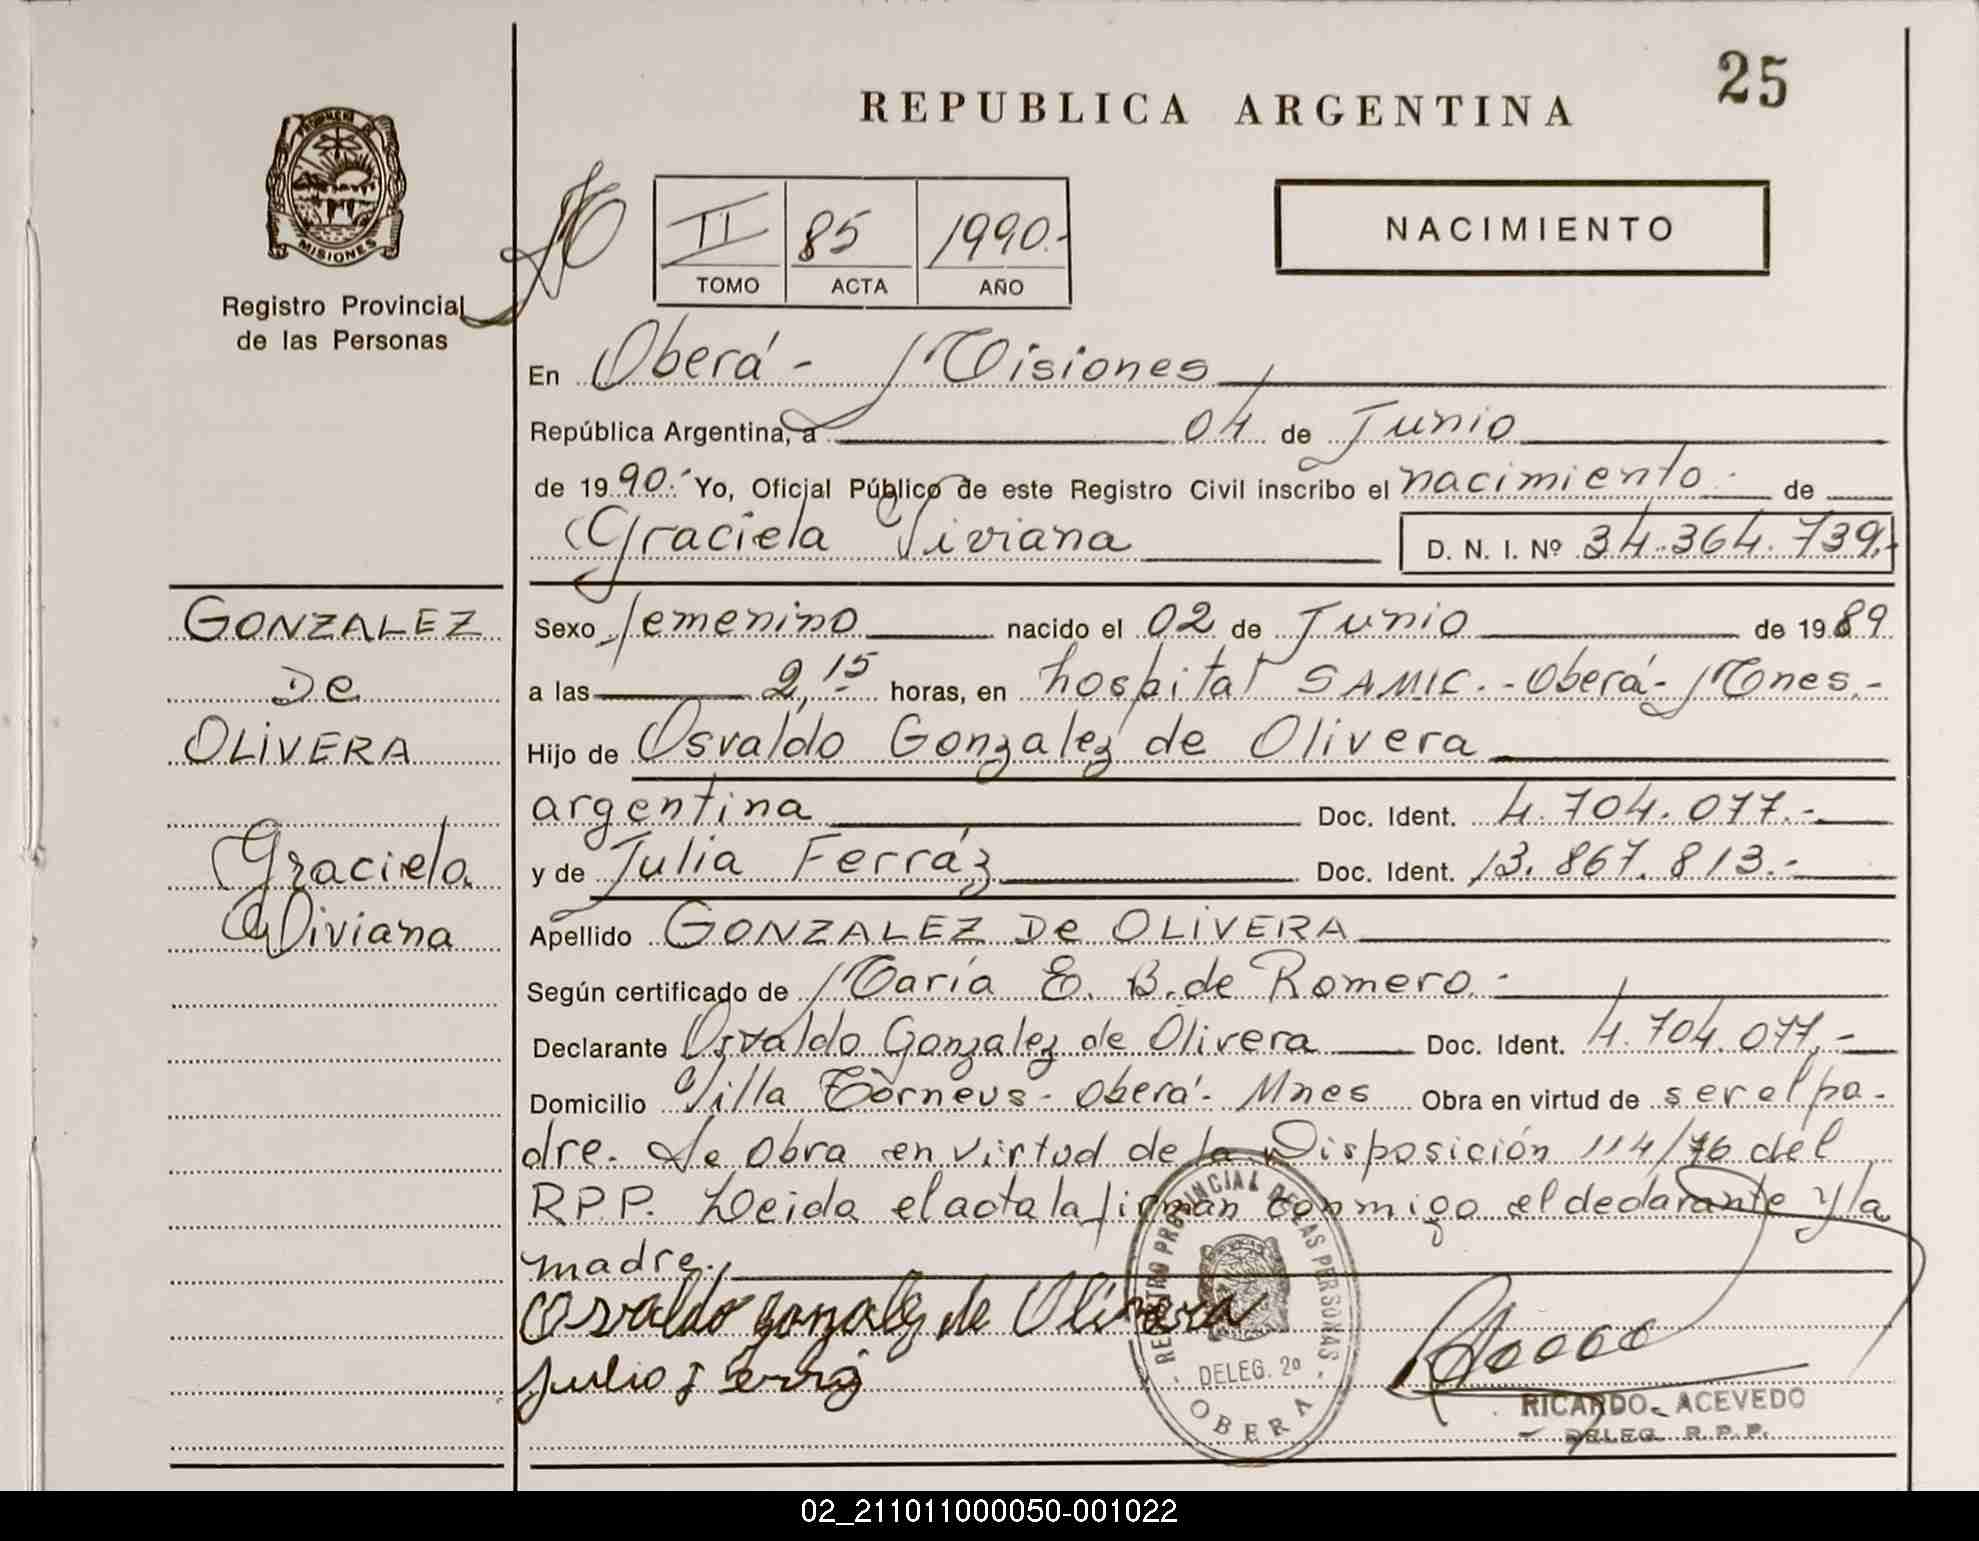 25
REPUBLICA ARGENTINA
PROVINCIA DE
MISIONES
Registro Provincial
de las Personas
II 85 1990.-
TOMO ACTA AÑO
NACIMIENTO
En Oberá - Misiones
República Argentina, a 04 de Junio
de 1990.- Yo, Oficial Público de este Registro Civil inscribo el nacimiento de
Graciela Viviana D. N. I. Nº 34.364.739.-
GONZALEZ
DE
OLIVERA
Graciela
Viviana
Sexo femenino nacido el 02 de Junio de 1989
a las 2,15 horas, en hospital SAMIC.- Oberá - Mnes.-
Hijo de Osvaldo Gonzalez de Olivera
argentina Doc. Ident. 4.704.077.-
y de Julia Ferráz Doc. Ident. 13.867.813.-
Apellido GONZALEZ De OLIVERA
Según certificado de María E. B. de Romero.-
Declarante Osvaldo Gonzalez de Olivera Doc. Ident. 4.704.077.-
Domicilio Villa Torneus - Oberá - Mnes Obra en virtud de ser el pa-
dre. Se obra en virtud de la Disposición 114/76 del
R.P.P. Leida el acta la firman conmigo el declarante y la
madre.
Osvaldo gonzalez de Olivera
REGISTRO PROVINCIAL DE LAS PERSONAS
DELEG. 2º
OBERA
RICARDO ACEVEDO
DELEG. R.P.P.
02_211011000050-001022